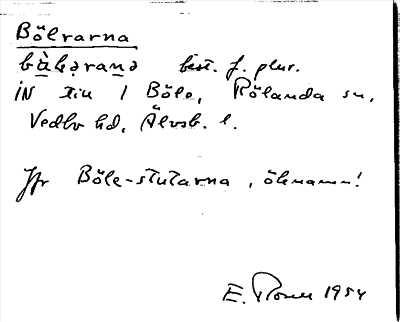 Bölrarna
bä̀hərańə best. f. plur.
IN till 1 Böle, Rölanda sn,
Vedbo hd, Älvsb. l.
Jfr Böle-stutarna, öknamn!
E. 1954